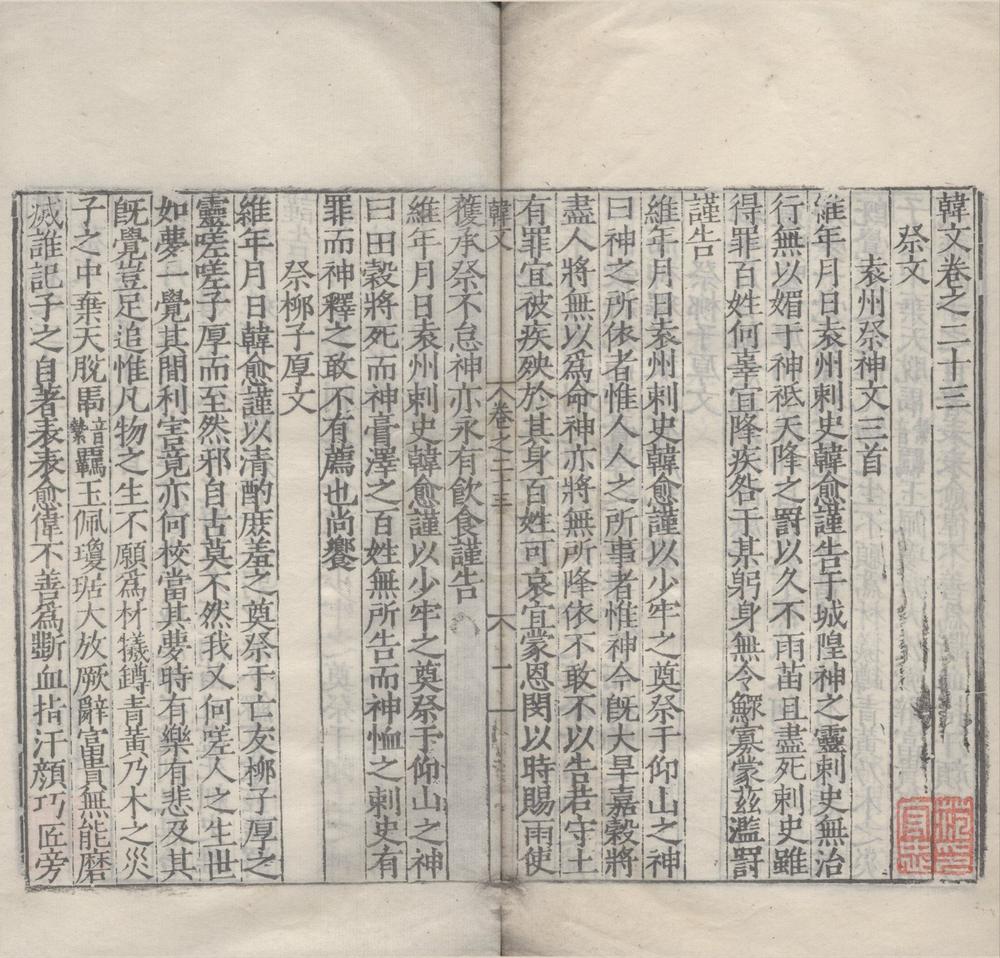 韓文卷之二十三
祭文
袁州祭神文三首
維年月日袁州刺史韓愈謹告于城隍神之靈刺史無治
行無以媚于神祗天降之罸以久不雨苗且盡死刺史雖
得罪百姓何辜宜降疾咎于某躬身無令鰥寡蒙茲濫罸
謹告
維年月日袁州刺史韓愈謹以少牢之奠祭于仰山之神
曰神之所依者惟人人之所事者惟神今旣大旱嘉穀將
盡人將無以爲命神亦將無所降依不敢不以告若守土
有罪宜被疾殃於其身百姓可哀宜蒙恩閔以時賜雨使
韓文
卷之二十三
一
穫承祭不怠神亦永有飲食謹告
維年月日袁州刺史韓愈謹以少牢之奠祭于仰山之神
曰田穀將死而神膏澤之百姓無所告而神恤之刺史有
罪而神釋之敢不有薦也尚饗
祭柳子厚文
維年月日韓愈謹以清酌庶羞之奠祭于亡友柳子厚之
靈嗟嗟子厚而至然邪自古莫不然我又何嗟人之生世
如夢一覺其間利害竟亦何校當其夢時有樂有悲及其
旣覺豈足追惟凡物之生不願爲材犧罇青黃乃木之災
子之中棄天脫馽音縶羈玉佩瓊琚大放厥辭富貴無能磨
滅誰記子之自著表表愈偉不善爲斲血指汗顏巧匠旁